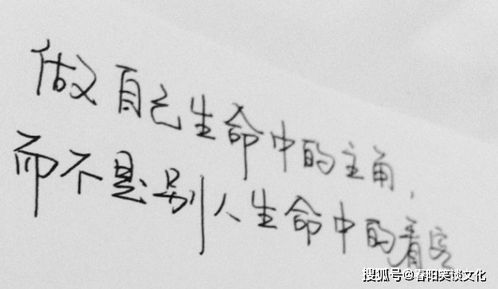 做自己生命中的主角,
而不是别人生命中的看客
搜狐号@春阳笑谈文化